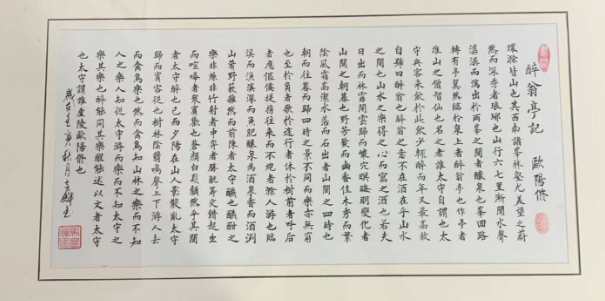 醉翁亭記 歐陽修
環滁皆山也其西南諸峯林壑尤美望之蔚
然而深秀者琅邪也山行六七里漸聞水聲
潺潺而瀉出於兩峯之間者釀泉也峯回路
轉有亭翼然臨於泉上者醉翁亭也作亭者
誰山之僧智仙也名之者誰太守自謂也太
守與客來飲於此飲少輒醉而年又最高故
自號曰醉翁也醉翁之意不在酒在乎山水
之間也山水之樂得之心而寓之酒也若夫
日出而林霏開雲歸而巖穴暝晦明變化者
山間之朝暮也野芳發而幽香佳木秀而繁
陰風霜高潔水落而石出者山間之四時也
朝而往暮而歸四時之景不同而樂亦無窮
也至於負者歌於途行者休於樹前者呼后
者應傴僂提攜往來而不絕者滁人游也臨
溪而漁溪深而魚肥釀泉為酒泉香而酒洌
山肴野蔌雜然而前陳者太守讌也讌酣之
樂非絲非竹射者中弈者勝觥籌交錯起坐
而喧嘩者眾賓歡也蒼顏白髮頹然乎其間
者太守醉也已而夕陽在山人影散亂太守
歸而賓客從也樹林陰翳鳴聲上下游人去
而禽鳥樂也然而禽鳥知山林之樂而不知
人之樂人知從太守游而樂而不知太守之
樂其樂也醉能同其樂醒能述以文者太守
也太守謂誰廬陵歐陽修也
歲在 秋月